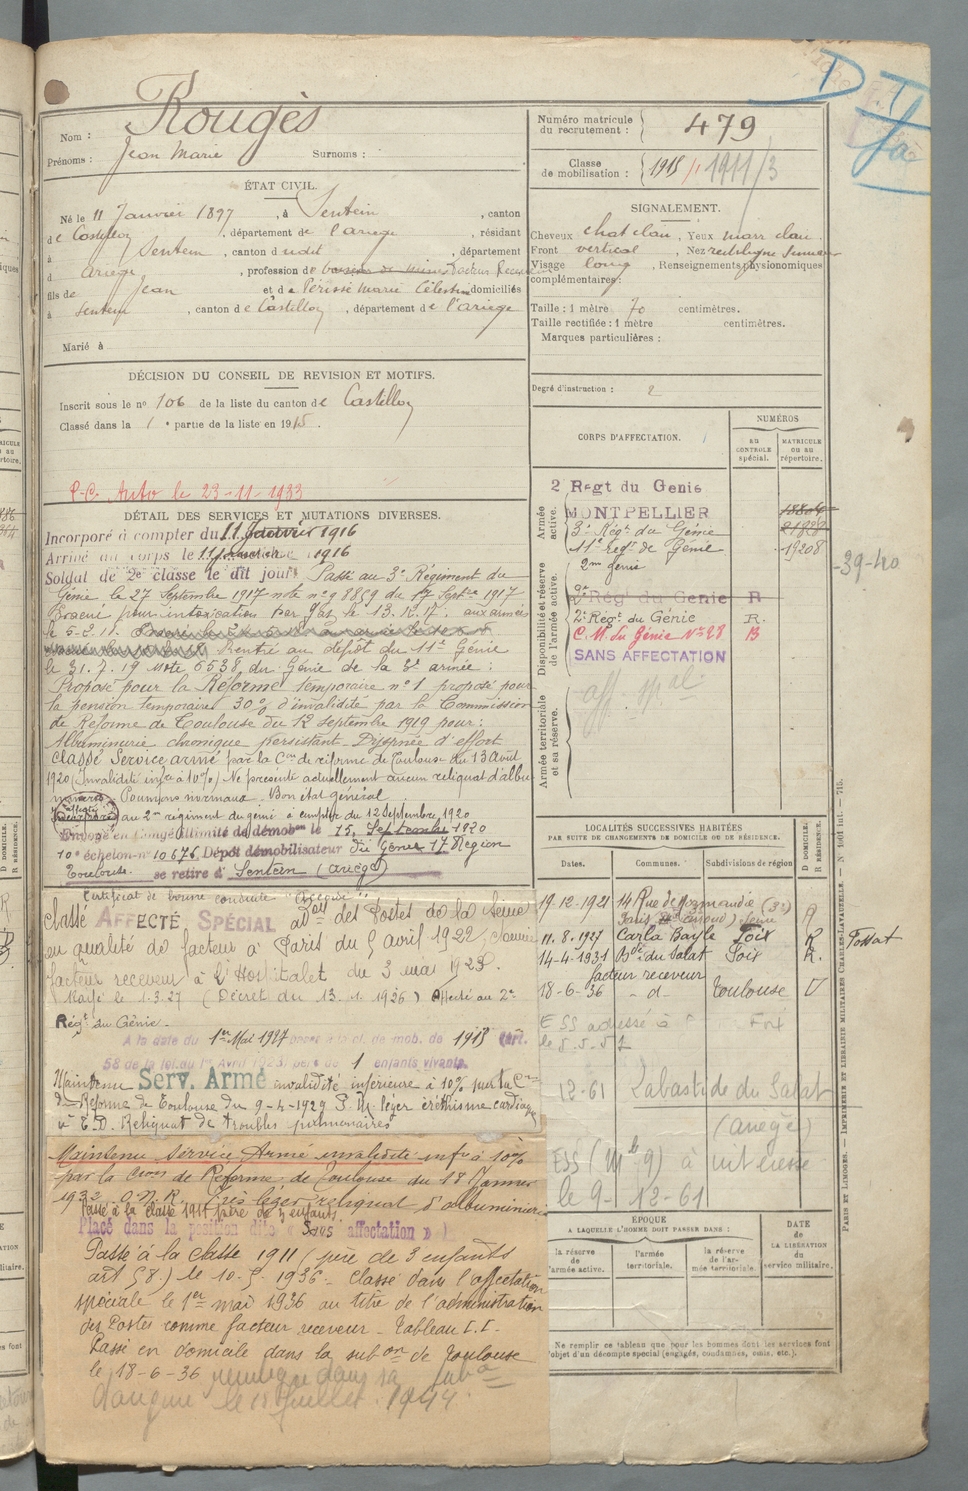 Nom : Rougès
Prénoms : Jean Marie Surnoms :
ÉTAT CIVIL.
Né le 11 Janvier 1897, à Sentein, canton
de Castillon, département de l'ariege, résidant
à Sentein, canton dudit, département
d ariege, profession de facteur Receveur
fils de Jean et de Périssé Marie Célestine domiciliés
à Sentein, canton de Castillon, département de l'ariege
Marié à
DÉCISION DU CONSEIL DE REVISION ET MOTIFS.
Inscrit sous le no 106 de la liste du canton de Castillon
Classé dans la 1e partie de la liste en 1915.
P.C. Auto le 23-11-1933
DÉTAIL DES SERVICES ET MUTATIONS DIVERSES.
Incorporé à compter du 11 Janvier 1916
Arrivé au corps le 11 1916
Soldat de 2e classe le dit jour. Passé au 3e Régiment du
Génie le 27 Septembre 1917 note no 9 8859 du 17 Septbre 1917
Evacué pour intoxication par gaz le 13.12.17. aux armées
le 5-2-18.
Rentré au dépôt du 11e Génie
le 31.7.19 Note 6538 du Génie de la 3e armée :
Proposé pour la Réforme temporaire no 1 proposé pour
la pension temporaire 30% d'invalidité par la Commission
de Réforme de Toulouse du 12 septembre 1919 pour :
Albuminurie chronique persistant - Dyspnée d'effort
Classé Service armé par la Con de réforme de Toulouse du 13 Avril
1920 (Invalidité infre à 10%) Ne présente actuellement aucun reliquat d'albu
minurie - Poumons normaux. Bon état général
au 2me régiment du génie à compter du 12 Septembre 1920
Envoyé en congé illimité de démobon le 15 Septembre 1920
10e échelon no 10676 Dépôt démobilisateur du Génie 17e Région
Toulouse se retire à Sentein (Ariège)
Certificat de bonne conduite "Accordé"
Classé AFFECTÉ SPÉCIAL des Postes de la Seine
en qualité de facteur à Paris du 5 avril 1922,
facteur receveur à l'Hospitalet du 3 mai 1925.
Rayé le 1.3.27 (Décret du 13.1.1926) Affecté au 2e
Régt du Génie.
A la date du 1er Mai 1927 passé à la cl. de mob. de 1913 (art.
58 de la loi du 1er Avril 1923) père de 1 enfants vivants.
Maintenu Serv. Armé invalidité inférieure à 10% par la Con
de Réforme de Toulouse du 9-4-1929 P.M. léger éréthisme cardiaque
Reliquat de troubles pulmonaires
Maintenu service Armé invalidité infre à 10%
par la Cion de Réforme de Toulouse du 18 Janvier
1932 O.N.R. Très léger reliquat d'albuminurie
Passé à la classe 1911 père de 3 enfants
Placé dans la position dite « Sans affectation »
Passé à la classe 1911 (père de 3 enfants
art 58.) le 10.5.1936 - Classé dans l'affectation
spéciale le 1er mai 1936 au titre de l'administration
des Postes comme facteur receveur - Tableau
Passé en domicile dans la subon de Toulouse
le 18-6-36
le 15 Juillet 1944.
Numéro matricule du recrutement : 479
Classe de mobilisation : 1911/3
SIGNALEMENT.
Cheveux chat clair, Yeux marr clair.
Front vertical, Nez rectiligne
Visage long, Renseignements physionomiques
complémentaires :
Taille : 1 mètre 70 centimètres.
Taille rectifiée : 1 mètre centimètres.
Marques particulières :
Degré d'instruction : 2
CORPS D'AFFECTATION.
NUMÉROS
AU CONTROLE spécial.
MATRICULE OU AU répertoire.
Armée active.
2 Régt du Genie
MONTPELLIER
3e Régt du Génie
11e regt de Génie 19208
2me génie
Disponibilité et réserve de l'armée active.
2e Régt du Genie R
2e Régt du Génie R.
C.M. du Génie No 28 B
SANS AFFECTATION
39-40
Armée territoriale et sa réserve.
aff. spal
LOCALITÉS SUCCESSIVES HABITÉES
PAR SUITE DE CHANGEMENTS DE DOMICILE OU DE RÉSIDENCE.
Dates. Communes. Subdivisions de région
D DOMICILE. R RÉSIDENCE.
19-12-1921 14 Rue de Normandie (3e)
Paris Seine
11.8.1927 Carla Bayle Foix R Fossat
14-4-1931 du Salat Foix R.
facteur receveur
18-6-36 -d- Toulouse D
ESS adressé à Foix
le 5.5.52
12-61 Labastide du Salat
(Ariège)
le 9-12-61
ÉPOQUE
A LAQUELLE L'HOMME DOIT PASSER DANS :
la réserve de l'armée active.
l'armée territoriale.
la réserve de l'armée territoriale.
DATE de LA LIBÉRATION du service militaire.
Ne remplir ce tableau que pour les hommes dont les services font
l'objet d'un décompte spécial (engagés, condamnés, omis, etc.).
PARIS ET LIMOGES. — IMPRIMERIE ET LIBRAIRIE MILITAIRES CHARLES-LAVAUZELLE.